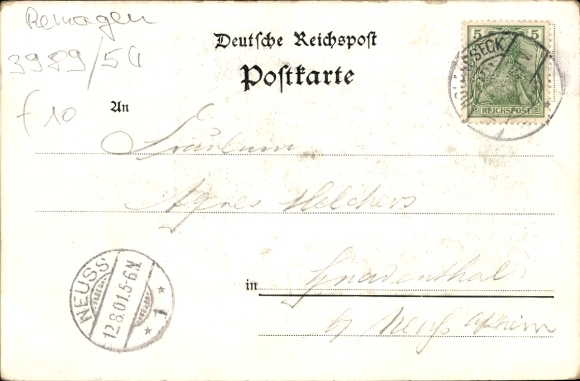 Remagen
3989/54
f 10
Deutsche Reichspost
Postkarte
An
5 5
REICHSPOST
ROLANDSECK
Fräulein
Agnes Melchers
in Gnadenthal
by Neuss
NEUSS
12.8.01.5-6N
* 1 *